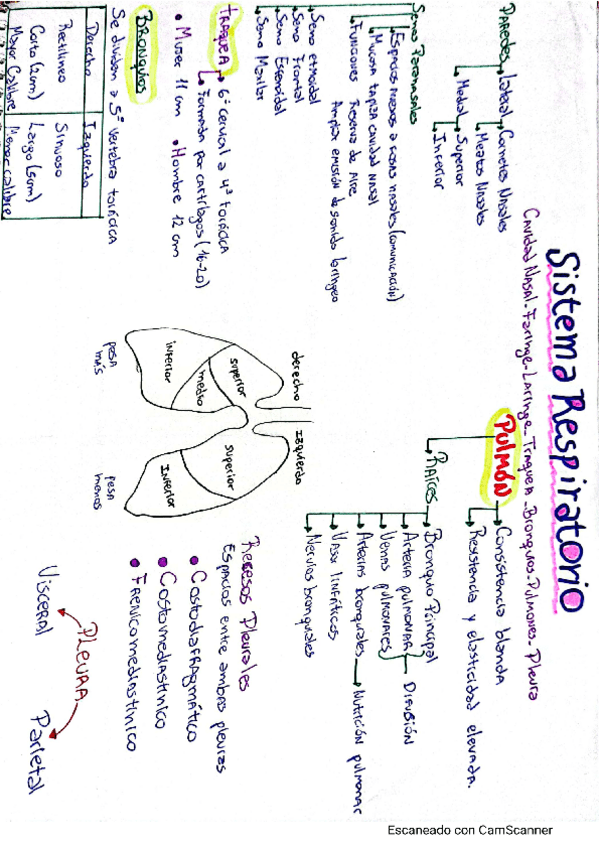 Sistema Respiratorio
Cavidad Nasal - Faringe - Laringe - Traquea - Bronquios - Pulmones - Pleura
Paredes
Lateral
Cornetes Nasales
Meatos Nasales
Medial
Superior
Inferior
Senos Paranasales
Espacios nuevos a fosas nasales (comunicación)
Mucosa tapiza cavidad nasal
Funciones
Reserva de Aire
Amplia emisión de sonido laríngeo
Seno etmoidal
Seno Frontal
Seno Esfenoidal
Seno Maxilar
TRAQUEA
6ª Cervical a 4ª torácica
Formada por cartílagos (16-20)
Mujer 11 cm
Hombre 12 cm
BRONQUIOS
Se dividen a 5ª vertebra torácica
Derecho
Izquierdo
Rectilíneo
Sinuoso
Corto (2cm)
Largo (5cm)
Mayor Calibre
Menor calibre
PULMÓN
Consistencia blanda
Resistencia y elasticidad elevada.
Raíces
Bronquio Principal
Arteria pulmonar
Venas pulmonares
Difusión
Arterias bronquiales
Nutrición pulmonar
Vasos linfáticos
Nervios bronquiales
derecho
Izquierdo
superior
medio
inferior
superior
Inferior
pesa más
pesa menos
Recesos Pleurales
Espacios entre ambas pleuras
Costodiafragmático
Costomediastínico
Frenicomediastínico
PLEURA
Visceral
Parietal
Escaneado con CamScanner